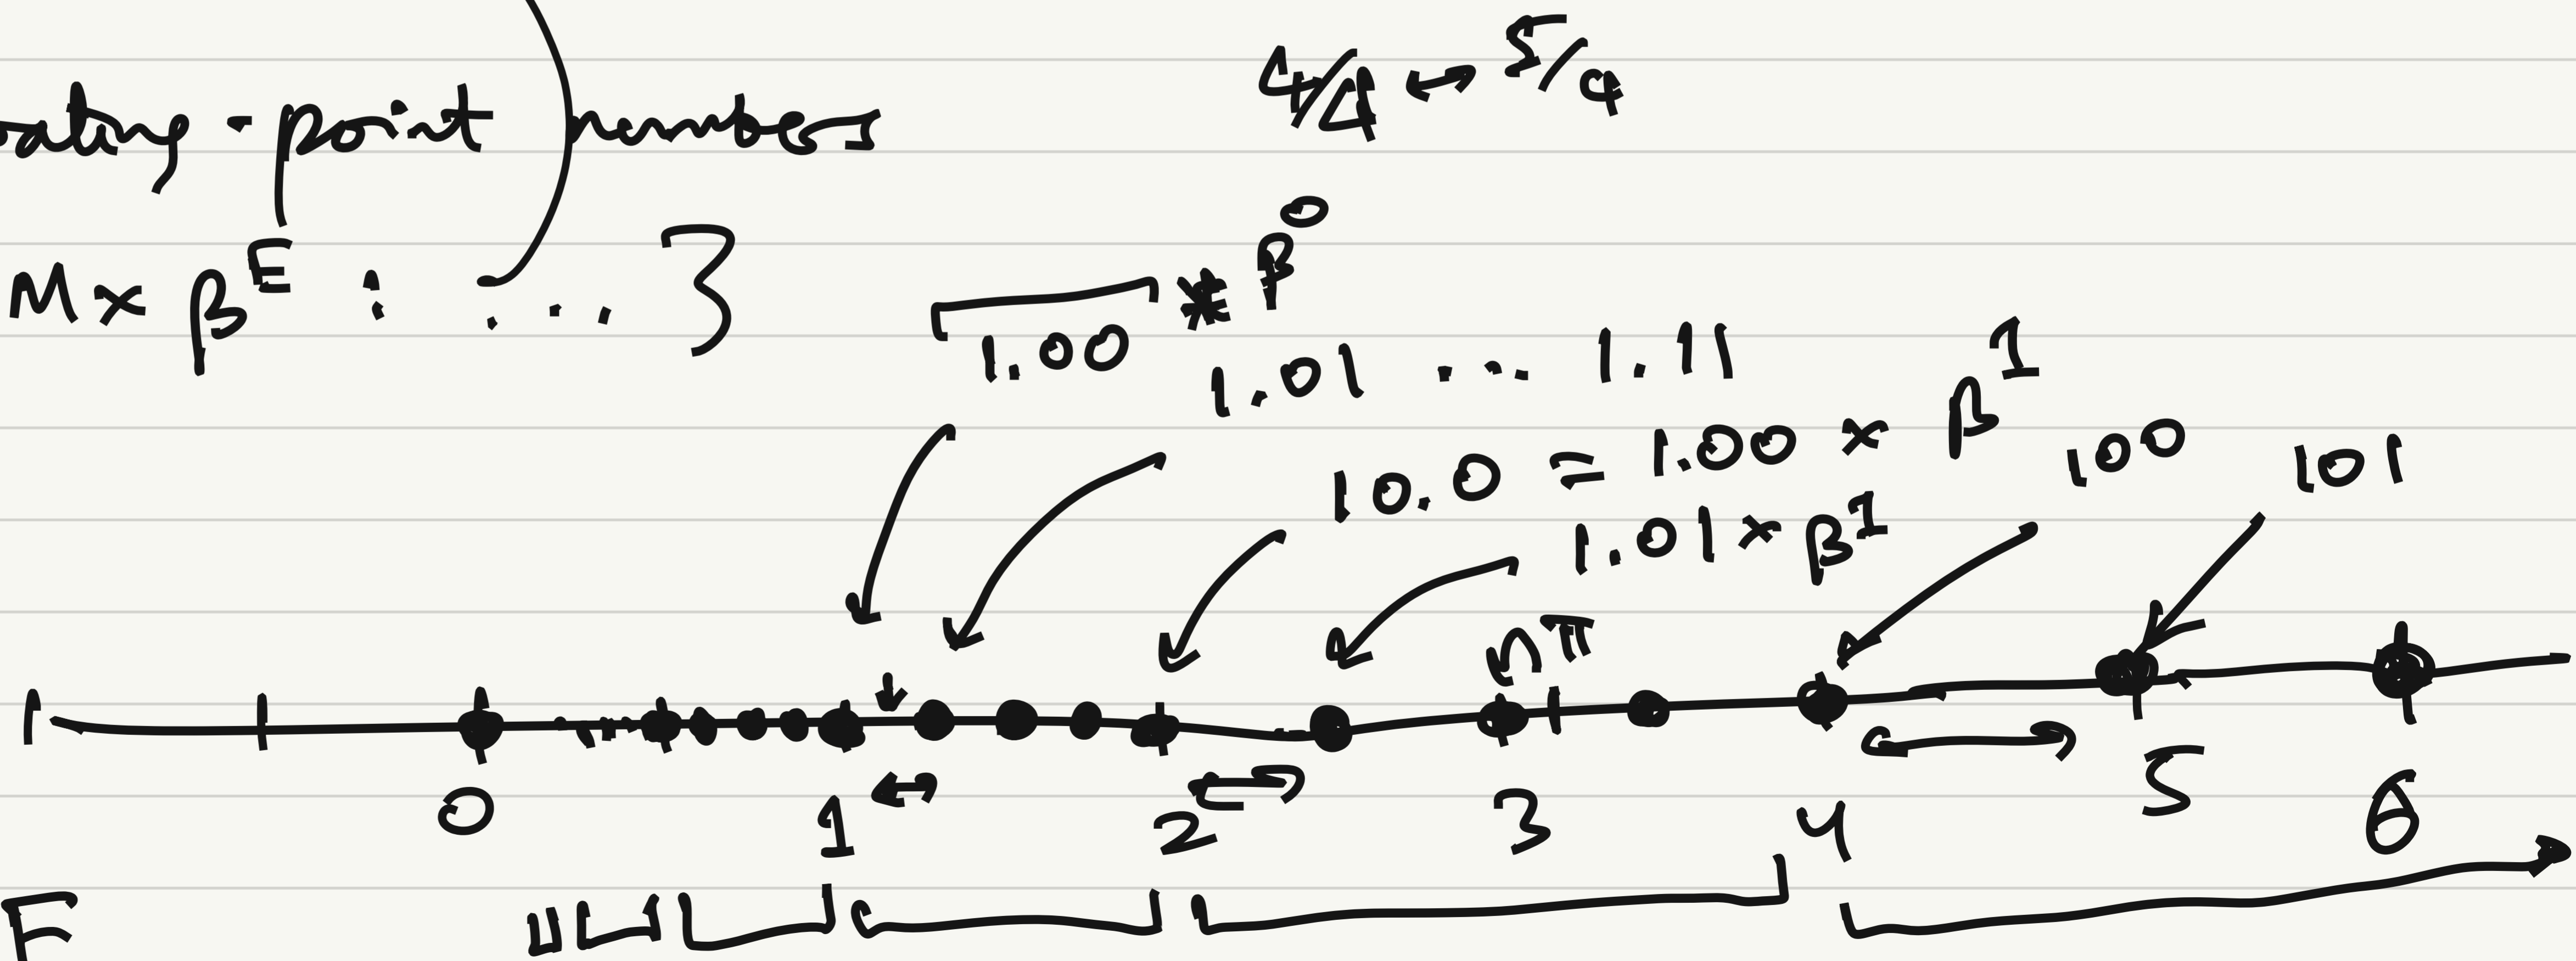 4/4 ↔ 5/4
ating-point numbers
M × β^E : ... }
1.00 * β^0
1.01 ... 1.11
10.0 = 1.00 × β^1
100
101
1.01 × β^1
π
0 1 2 3 4 5 6
F